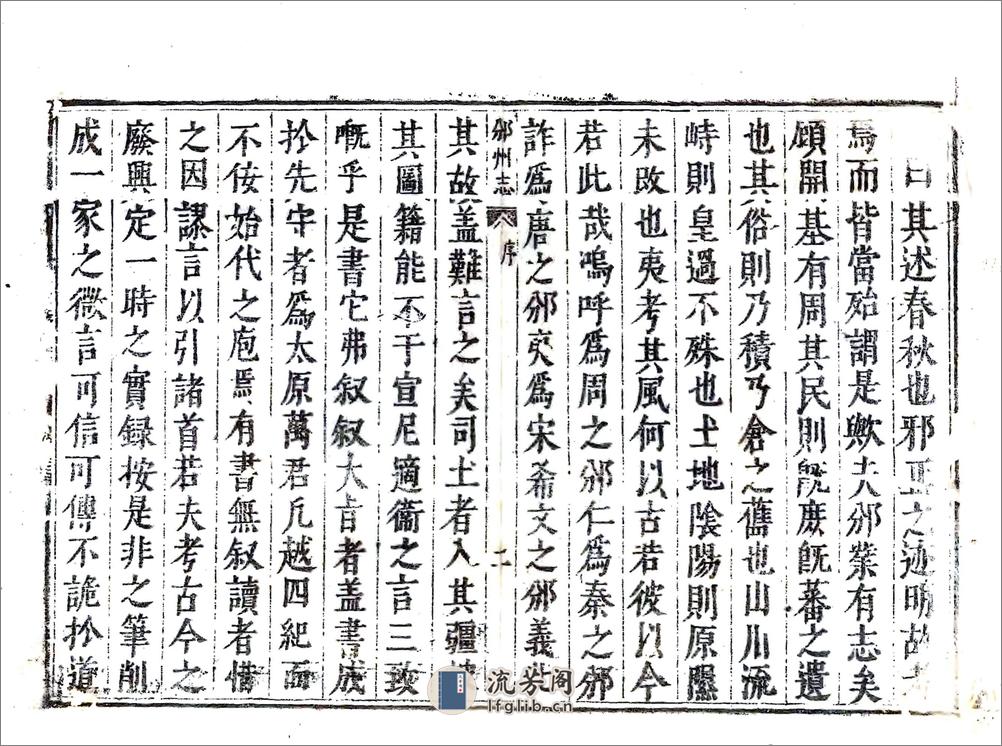 曰其述春秋也邪正之迹明故
焉而皆當殆謂是歟夫邠業有志矣
頋開基有周其民則旣庶旣蕃之遺
也其俗則乃積乃倉之舊也山川流
峙則皇過不殊也土地陰陽則原隰
未改也夷考其風何以古若彼以今
若此哉嗚呼爲周之邠仁爲秦之邠
詐爲唐之邠夷爲宋希文之邠義
邠州志 序 二
其故盖難言之矣司土者入其疆
其圖籍能不于宣尼適衞之言三致
嘅乎是書它弗叙叙大㫖者盖書成
扵先守者爲太原萬君凢越四紀而
不侫始代之庖焉有書無叙讀者惜
之因謬言以引諸首若夫考古今之
廢興定一時之實録按是非之筆削
成一家之微言可信可傳不詭扵道
流芳阁
lfglib.cn